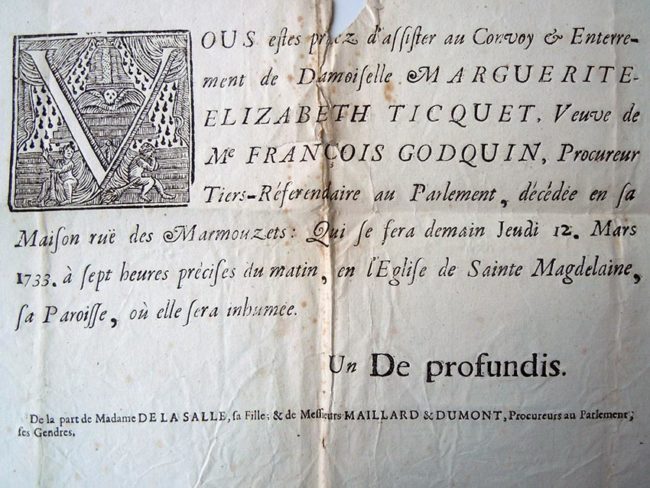 VOUS estes priez d'assister au Convoy & Enterre-
ment de Damoiselle MARGUERITE-
ELIZABETH TICQUET, Veuve de
Me FRANÇOIS GODQUIN, Procureur
Tiers-Réferendaire au Parlement, décédée en sa
Maison ruë des Marmouzets: Qui se fera demain Jeudi 12. Mars
1733. à sept heures précises du matin, en l'Eglise de Sainte Magdelaine,
sa Paroisse, où elle sera inhumée.
Un De profundis.
De la part de Madame DE LA SALLE, sa Fille; & de Messieurs MAILLARD & DUMONT, Procureurs au Parlement;
ses Gendres.